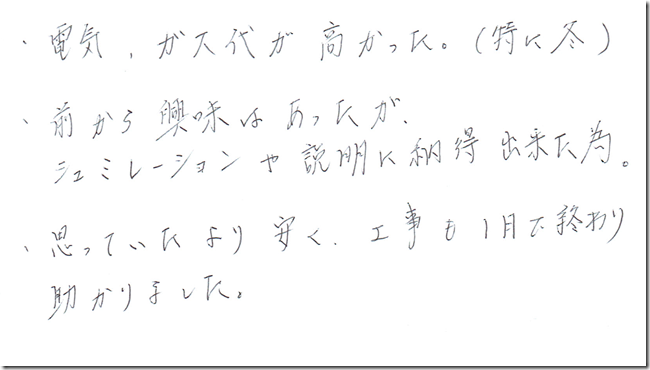 ・電気、ガス代が高かった。(特に冬)
・前から興味はあったが、
シュミレーションや説明に納得出来た為。
・思っていたより安く、工事も1日で終わり
助かりました。